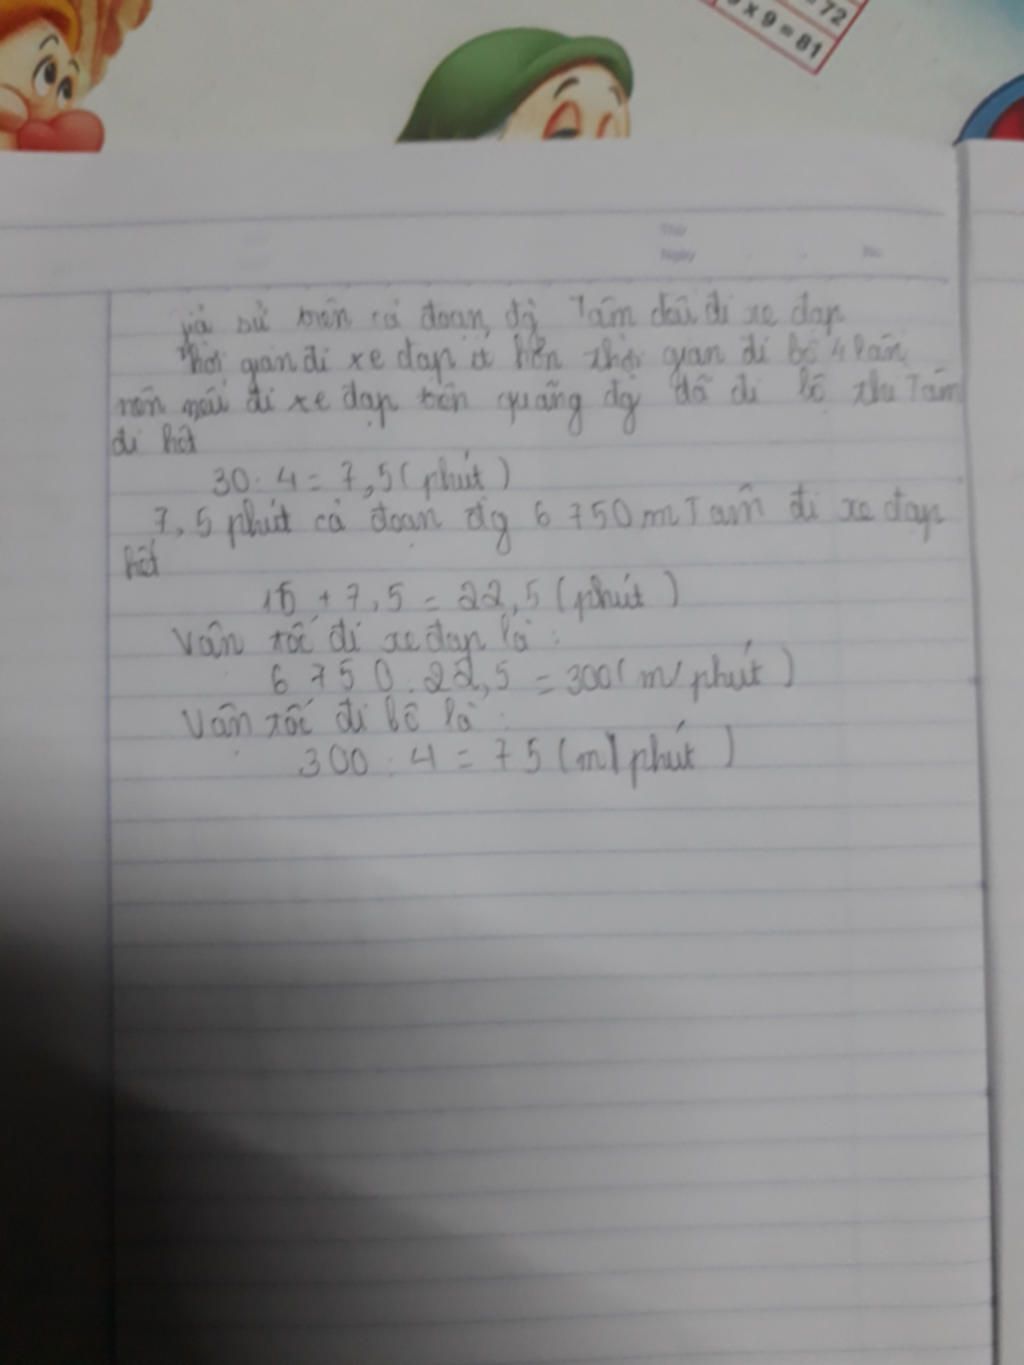 = 72
9 x 9 = 81
Thứ
Ngày
No.
giả sử trên cả đoạn đg Tâm đều đi xe đạp
Thời gian đi xe đạp ít hơn thời gian đi bộ 4 lần
nên nếu đi xe đạp trên quãng đg đã đi bộ thì Tâm
đi hết
30 : 4 = 7,5 (phút)
7,5 phút cả đoạn đg 6 750 m Tâm đi xe đạp
hết
15 + 7,5 = 22,5 (phút)
Vận tốc đi xe đạp là :
6 750 : 22,5 = 300 (m/phút)
Vận tốc đi bộ là :
300 : 4 = 75 (m/phút)